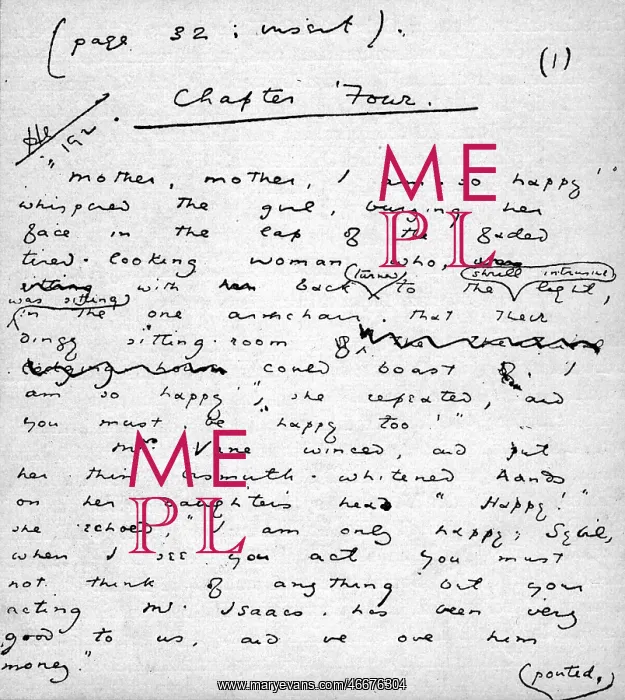 (page 32 : insert).
(1)
Chapter Four.
"Mother, mother, I am so happy"
whispered the girl, burying her
face in the lap of the faded
tired-looking woman who,
with her back turned to the shrill intrusive light,
was sitting in the one armchair that their
dingy sitting-room
could boast of. "I
am so happy", she repeated, "and
you must be happy too!"
Mrs Vane winced, and put
her thin bismuth-whitened hands
on her daughter's head "Happy!"
she echoed, "I am only happy, Sybil,
when I see you act you must
not think of anything but your
acting Mr. Isaacs has been very
good to us, and we owe him
money."
(pouted,)
ME
PL
ME
PL
www.maryevans.com/46676304